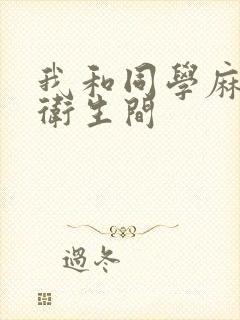 我和同學麻
衛生間
過冬